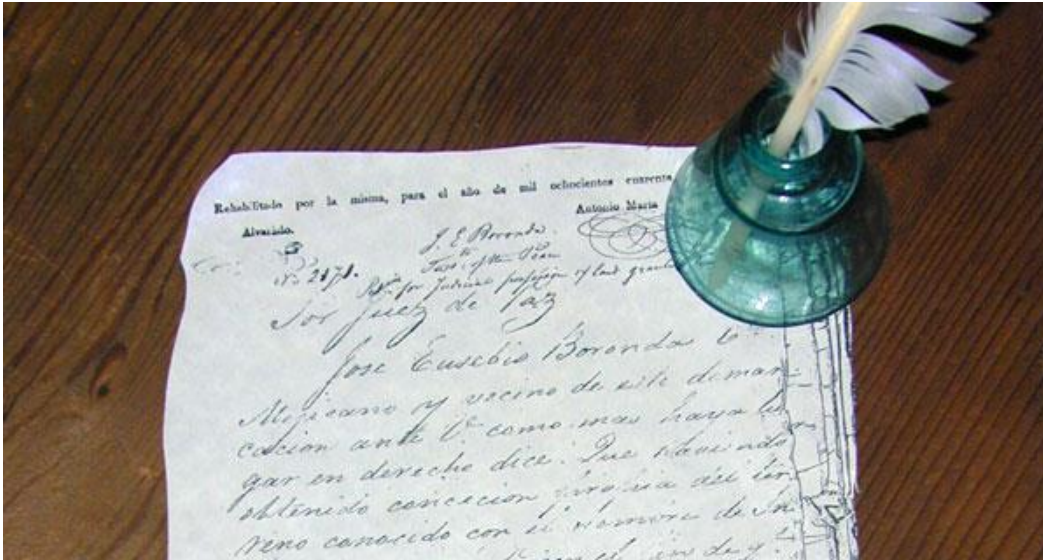 Rehabilitado por la misma, para el año de mil ochocientos cuarenta
Antonio Maria
Alvarado.
J. E. Boronda.
No 2171.
for Judicial of land
Sor Juez de Paz
Jose Eusebio Boronda
Mejicano y vecino de esta demar-
cacion ante V. como mas haya lu-
gar en derecho dice. Que habiendo
obtenido concecion del ter
reno conocido con el nombre de Sn